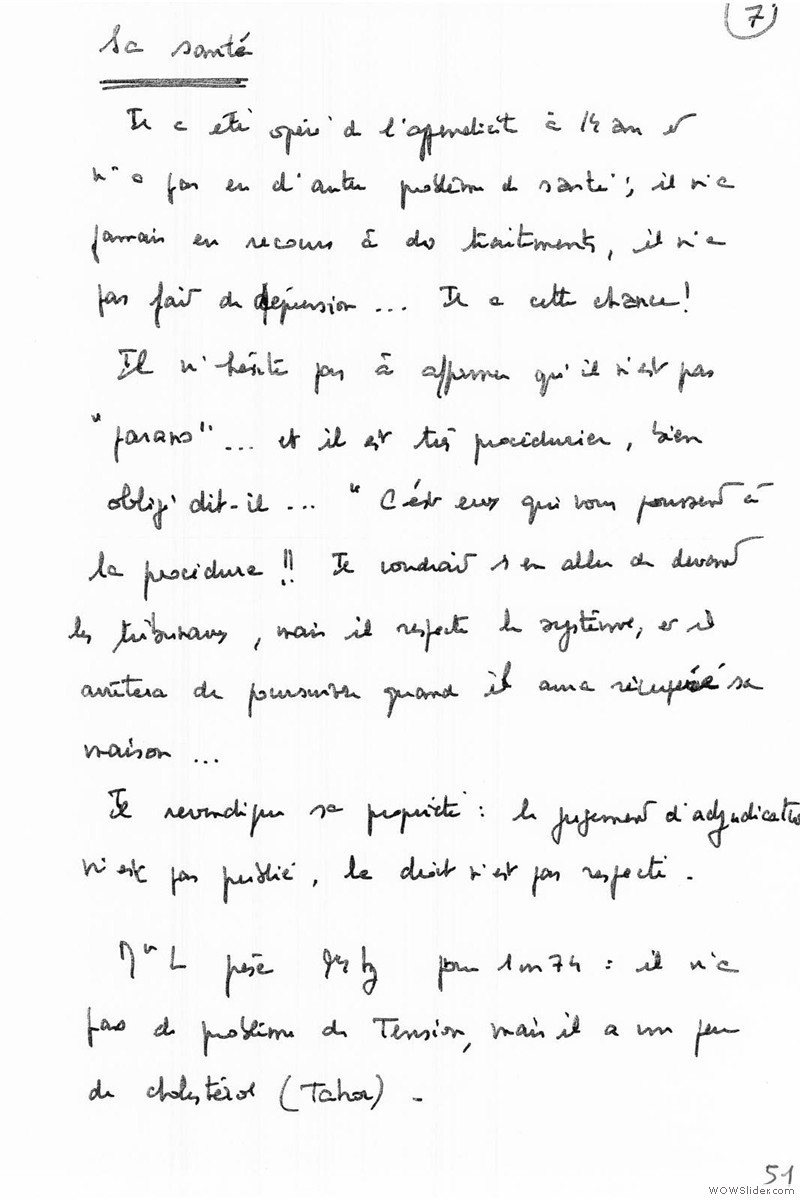 7
Sa santé
Il a été opéré de l'appendicite à 14 ans et
n'a pas eu d'autre problème de santé ; il n'a
jamais eu recours à des traitements, il n'a
pas fait de dépression ... Il a cette chance !
Il n'hésite pas à affirmer qu'il n'est pas
"parano" ... et il est très procédurier, bien
obligé dit-il ... "C'est eux qui vous poussent à
la procédure !! Il voudrait s'en aller de devant
les tribunaux, mais il respecte le système, et il
arrêtera de poursuivre quand il aura récupéré sa
maison ...
Il revendique sa propriété : le jugement d'adjudication
n'est pas publié, le droit n'est pas respecté.
Mr L pèse kg pour 1m74 : il n'a
pas de problème de Tension, mais il a un peu
de cholestérol (Tahor).
51
WOWSlider.com